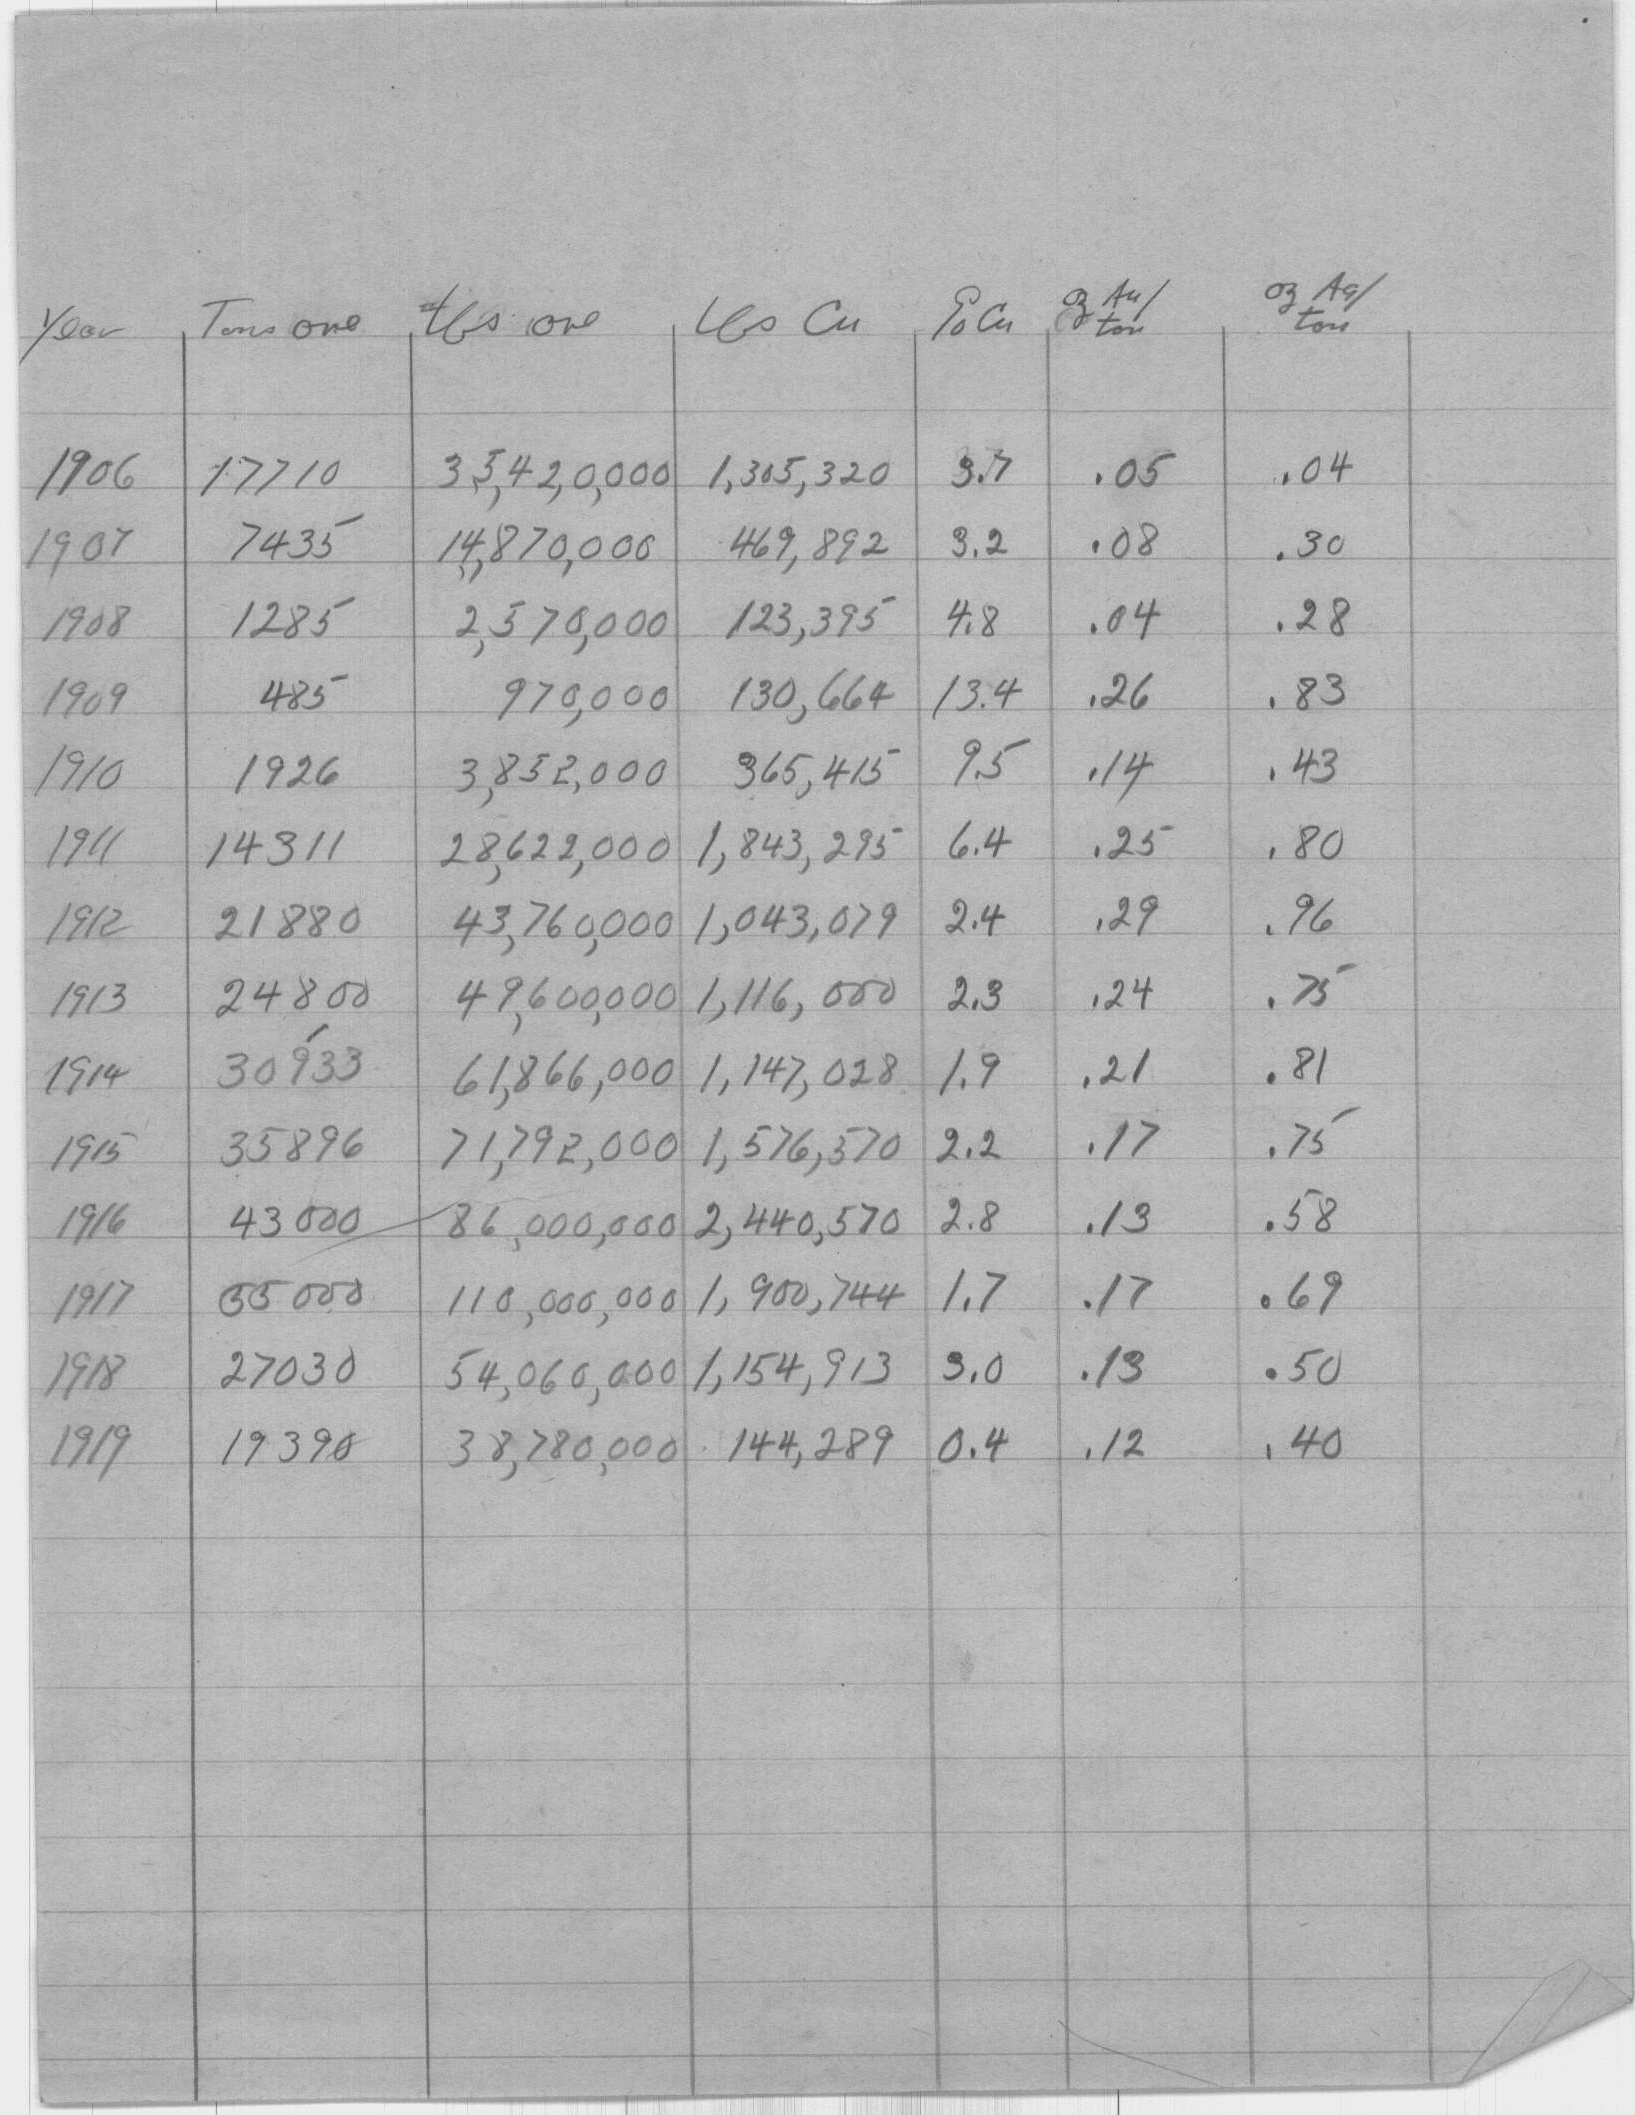 Year Tons ore Lbs ore Lbs Cu % Cu oz Au/ton oz Ag/ton
1906 17710 35,420,000 1,305,320 3.7 .05 .04
1907 7435 14,870,000 469,892 3.2 .08 .30
1908 1285 2,570,000 123,395 4.8 .04 .28
1909 485 970,000 130,664 13.4 .26 .83
1910 1926 3,852,000 365,415 9.5 .14 .43
1911 14311 28,622,000 1,843,295 6.4 .25 .80
1912 21880 43,760,000 1,043,079 2.4 .29 .96
1913 24800 49,600,000 1,116,000 2.3 .24 .75
1914 30933 61,866,000 1,147,028 1.9 .21 .81
1915 35896 71,792,000 1,576,570 2.2 .17 .75
1916 43000 86,000,000 2,440,570 2.8 .13 .58
1917 55000 110,000,000 1,900,744 1.7 .17 .69
1918 27030 54,060,000 1,154,913 3.0 .13 .50
1919 19390 38,780,000 144,289 0.4 .12 .40